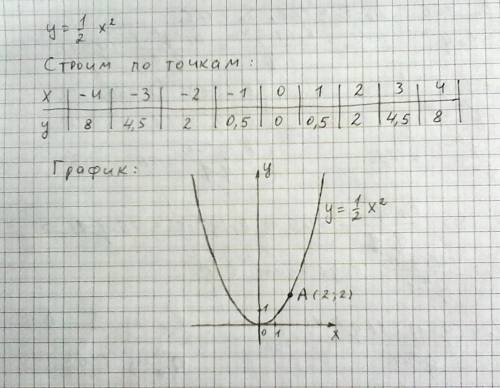 y = 1/2 x²
Строим по точкам:
x | -4 | -3 | -2 | -1 | 0 | 1 | 2 | 3 | 4
y | 8 | 4,5 | 2 | 0,5 | 0 | 0,5 | 2 | 4,5 | 8
График:
y
y = 1/2 x²
A(2;2)
1
0 1
x